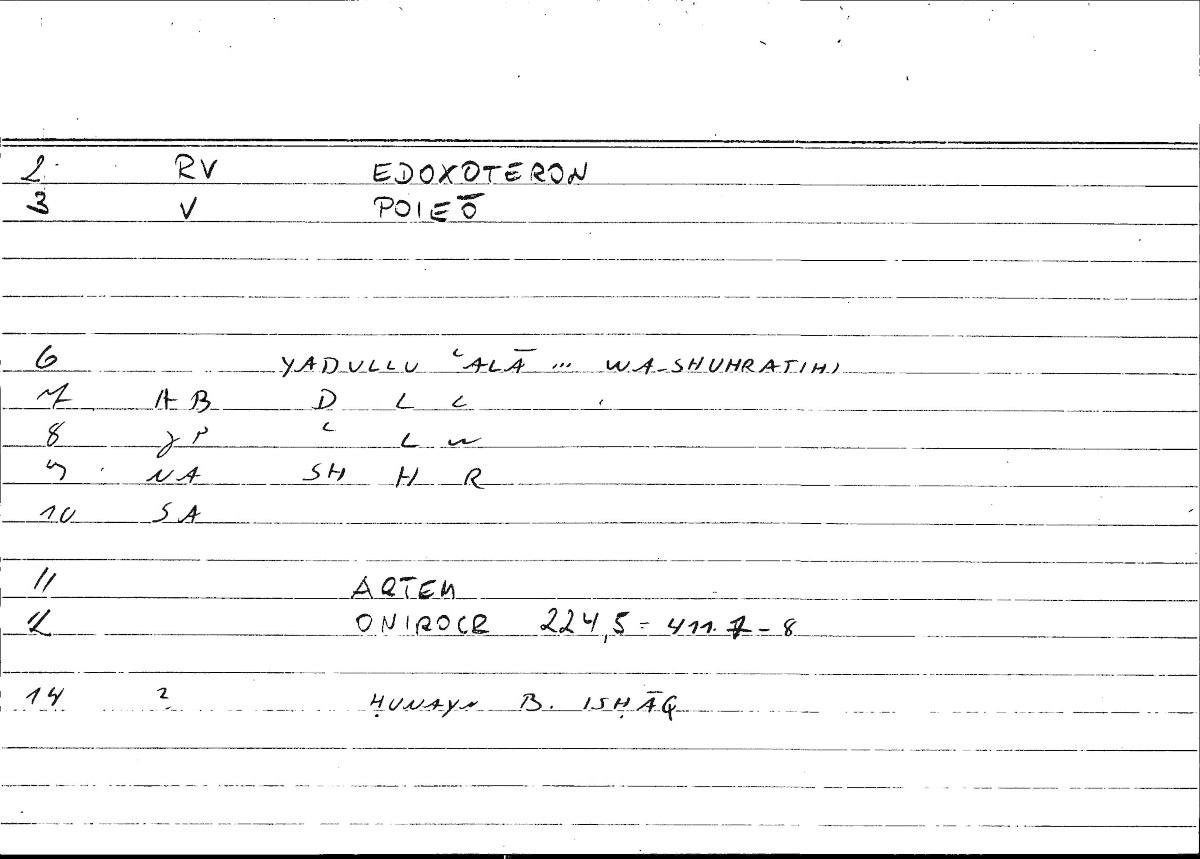 2 RV EDOXOTERON
3 V POIEŌ
6 YADULLU ʿALĀ ... WA-SHUHRATIHI
7 AB D L L
8 JP ʿ L W
9 NA SH H R
10 SA
11 ARTEM
12 ONIROCR 224,5 = 411.7-8
14 2 ḤUNAYN B. ISḤĀQ